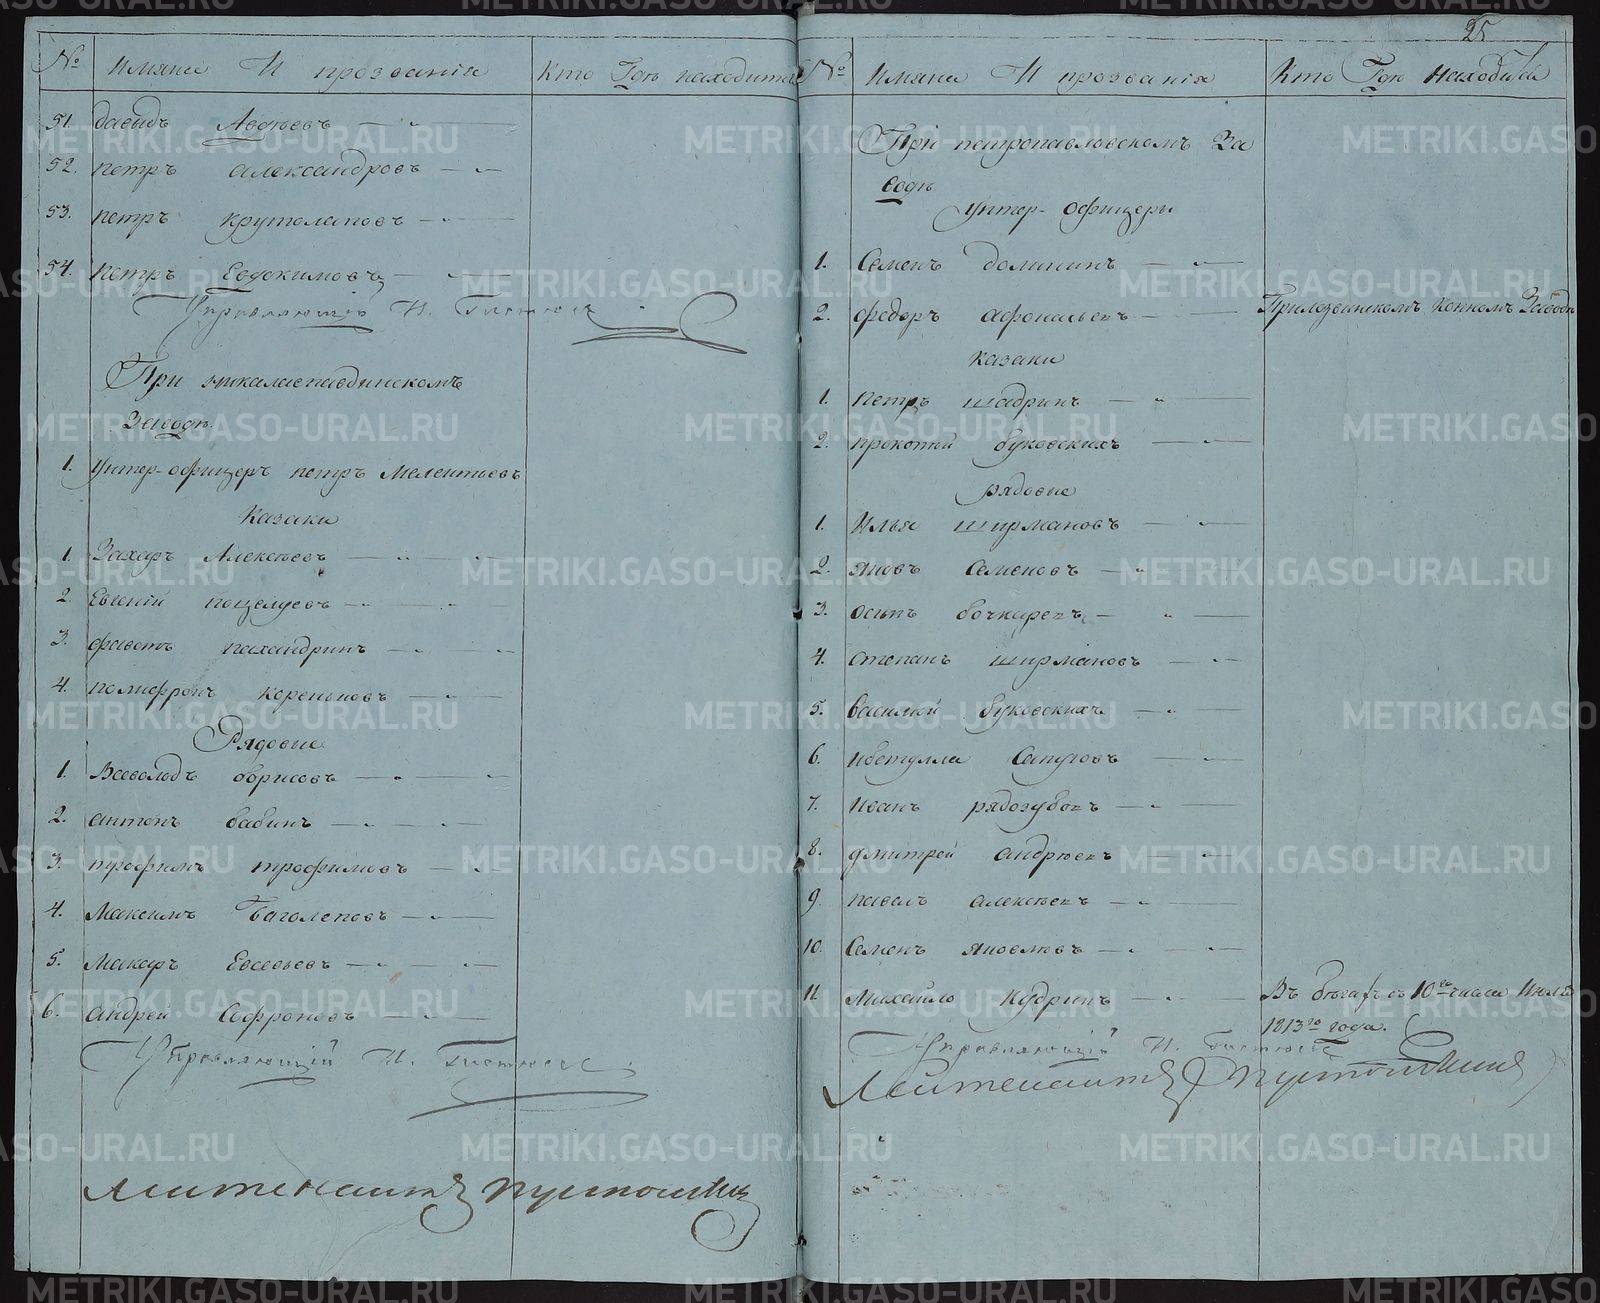 № Имяна И прозванія Кто Гдѣ находитца
51. давыдъ Авдѣевъ
52. петръ александровъ
53. петръ круталаповъ
54. Петръ Евдокимовъ
Управляющій И.
При николаепавдинскомъ
Заводѣ.
1. Унтер-офицеръ петръ Мелентьевъ
Казаки
1. Захаръ Алексѣевъ
2. Евгеній поцелуевъ
3. фавстъ пахандринъ
4. полифронъ кореньковъ
Рядовые
1. Всевольдъ борисовъ
2. антонъ бабинъ
3. трофимъ трофимовъ
4. Максимъ Баголеповъ
5. Макаръ Евсевьевъ
6. андрей Софроновъ
Управляющій И.
Лейтенантъ
25
№ Имяна И прозванія Кто Гдѣ находитца
При петропавловскомъ За
водѣ
Унтер-офицеры
1. Семенъ долининъ
2. федоръ афонасьевъ При лозвинскомъ конномъ Заводѣ
казаки
1. Петръ шадринъ
2. прокопей буковскихъ
рядовые
1. Илья ширмановъ
2. яковъ Семеновъ
3. осипъ бочкаревъ
4. степанъ ширмановъ
5. василей буковскихъ
6. ибетулла Сапуговъ
7. иванъ рядозубовъ
8. дмитрей андрѣевъ
9. павелъ алексѣевъ
10. Семенъ яковлевъ
11. Михайло Кудринъ Въ бѣгахъ съ 10го числа Июля
1813го года.
Управляющій И.
Лейтенантъ
METRIKI.GASO-URAL.RU